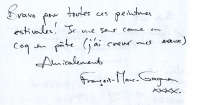 Bravo pour toutes ces peintures
estivales! Je me sens comme un
coq en pâte (j'ai coeur mes
Amicalement
François-Marc Gagnon
xxxx.